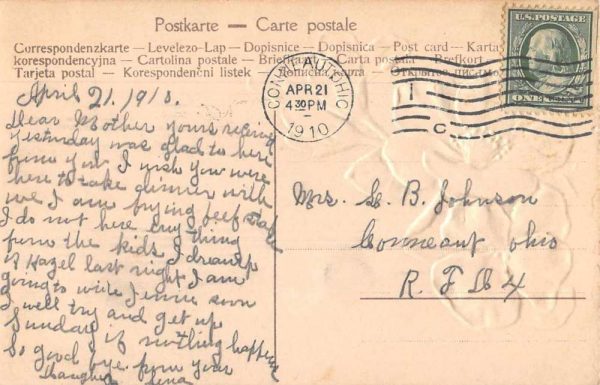 Postkarte — Carte postale
Correspondenzkarte — Levelezo-Lap — Dopisnice — Dopisnica — Post card — Karta
korespondencyjna — Cartolina postale — Brief — Carta postala — Brefkort
Tarjeta postal — Korespondenční listek —
U.S. POSTAGE
ONE CENT
CONNEAUT, OHIO
APR 21
4 30 PM
1910
April 21, 1910.
Dear Mother yours received
yesterday was glad to here
from you I wish you were
here to take dinner with
me I am frying beef steak
I do not here any thing
from the kids I dreamed
of Hazel last night I am
going to write Jennie soon
I will try and get up
Sunday if nothing happens
So good bye from your
daughter Lena
Mrs. L. B. Johnson
Conneaut Ohio
R. F. D. 4